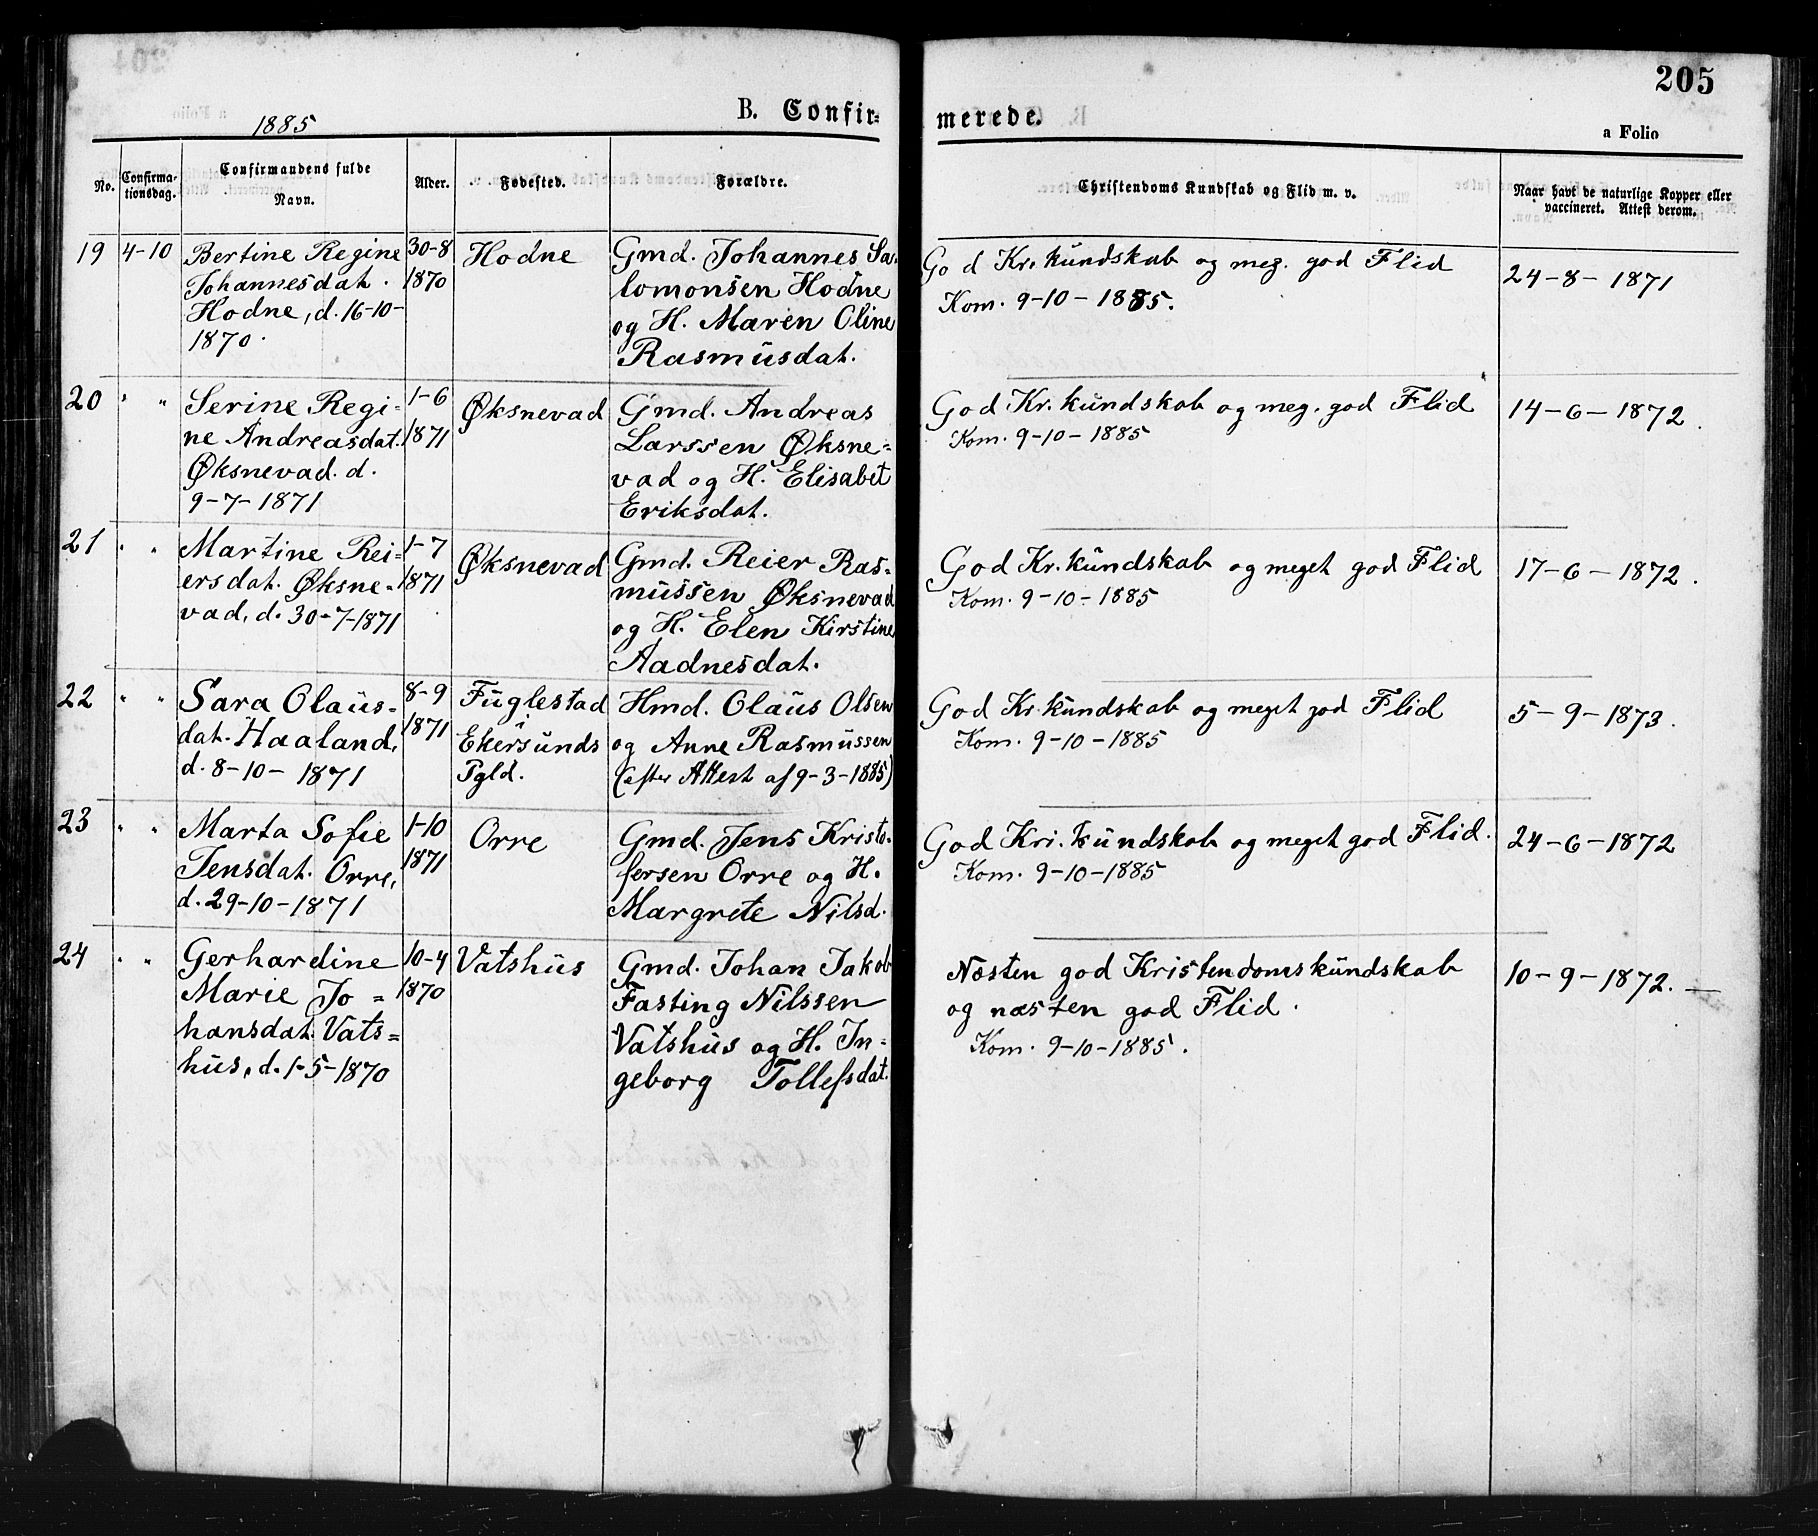 205
1885
B. Confir-
merede.
a Folio
No.
Confirma-
tionsdag.
Confirmandens fulde
Navn.
Alder.
Fødested.
Forældre.
Christendoms Kundskab og Flid m. v.
Naar havt de naturlige Kopper eller
vaccineret. Attest derom.
19
4-10
Bertine Regine
Johannesdat.
Hodne, d. 16-10-
1870.
30-8
1870
Hodne
Gmd. Johannes Sa-
lomonsen Hodne
og H. Maren Oline
Rasmusdat.
God Kr. kundskab og meg. god Flid
Kom. 9-10-1885.
24-8-1871
20
" "
Serine Regi-
ne Andreasdat.
Øksnevad. d.
9-7-1871
1-6
1871
Øksnevad
Gmd. Andreas
Larssen Øksne-
vad og H. Elisabet
Eriksdat.
God Kr. kundskab og meg. god Flid
Kom. 9-10-1885
14-6-1872.
21
" "
Martine Rei-
ersdat. Øksne-
vad, d. 30-7-1871
1-7
1871
Øksnevad
Gmd. Reier Ras-
mussen Øksnevad
og H. Elen Kirstine
Aadnesdat.
God Kr. kundskab og meget god Flid
Kom. 9-10-1885
17-6-1872.
22
" "
Sara Olaus-
dat. Haaland,
d. 8-10-1871
8-9
1871
Fuglestad
i
Ekersunds
Pgld.
Hmd. Olaus Olsen
og Anne Rasmussen
(efter Attest af 9-3-1885)
God Kr. kundskab og meget god Flid
Kom. 9-10-1885
5-9-1873.
23
" "
Marta Sofie
Jensdat. Orre,
d. 29-10-1871
1-10
1871
Orre
Gmd. Jens Kristo-
fersen Orre og H.
Margrete Nilsd.
God Kr. kundskab og meget god Flid.
Kom. 9-10-1885
24-6-1872
24
" "
Gerhardine
Marie Jo=
hansdat. Vats=
hus, d. 1-5-1870
10-4
1870
Vatshus
Gmd. Johan Jakob
Fasting Nilssen
Vatshus og H. In=
geborg Tollefsdat.
Næsten god Kristendomskundskab
og næsten god Flid.
Kom. 9-10-1885.
10-9-1872.